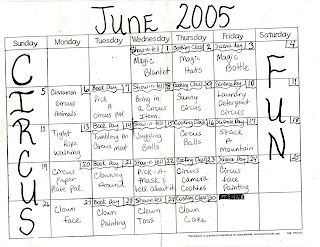 JUNE 2005
Sunday Monday Tuesday Wednesday Thursday Friday Saturday
Show-n-tell 1 Cooking Class 2 Science day 3 4
Magic Blanket
Magic Hats
Magic Bottle
5 6 Book Day 7 Show-n-tell 8 Cooking Class 9 Science day 10 11
Cinnamon Circus Animals
Pick A circus pat
Bring in a Circus Item.
Sunny Circus
Laundry Detergent circus
12 13 Book Day 14 Show-n-tell 15 Cooking Class 16 Science Day 17 18
Tight Rope Walking
Tumbling on Circus mat
Juggling Balls
Circus Balls
Stack A Mountain
19 20 Book Day 21 Show-n-tell 22 Cooking Class 23 Science Day 24 25
Circus Paper Plate Pal.
Clowning Around
Pick-A-Mask & tell about it
Circus Camera Cookies
Circus face Painting
26 27 Book Day 28 Show-n-tell 29 Cooking Class 30
Clown face
Clown Painting
Clown Toss
Clown Cake
CIRCUS
FUN